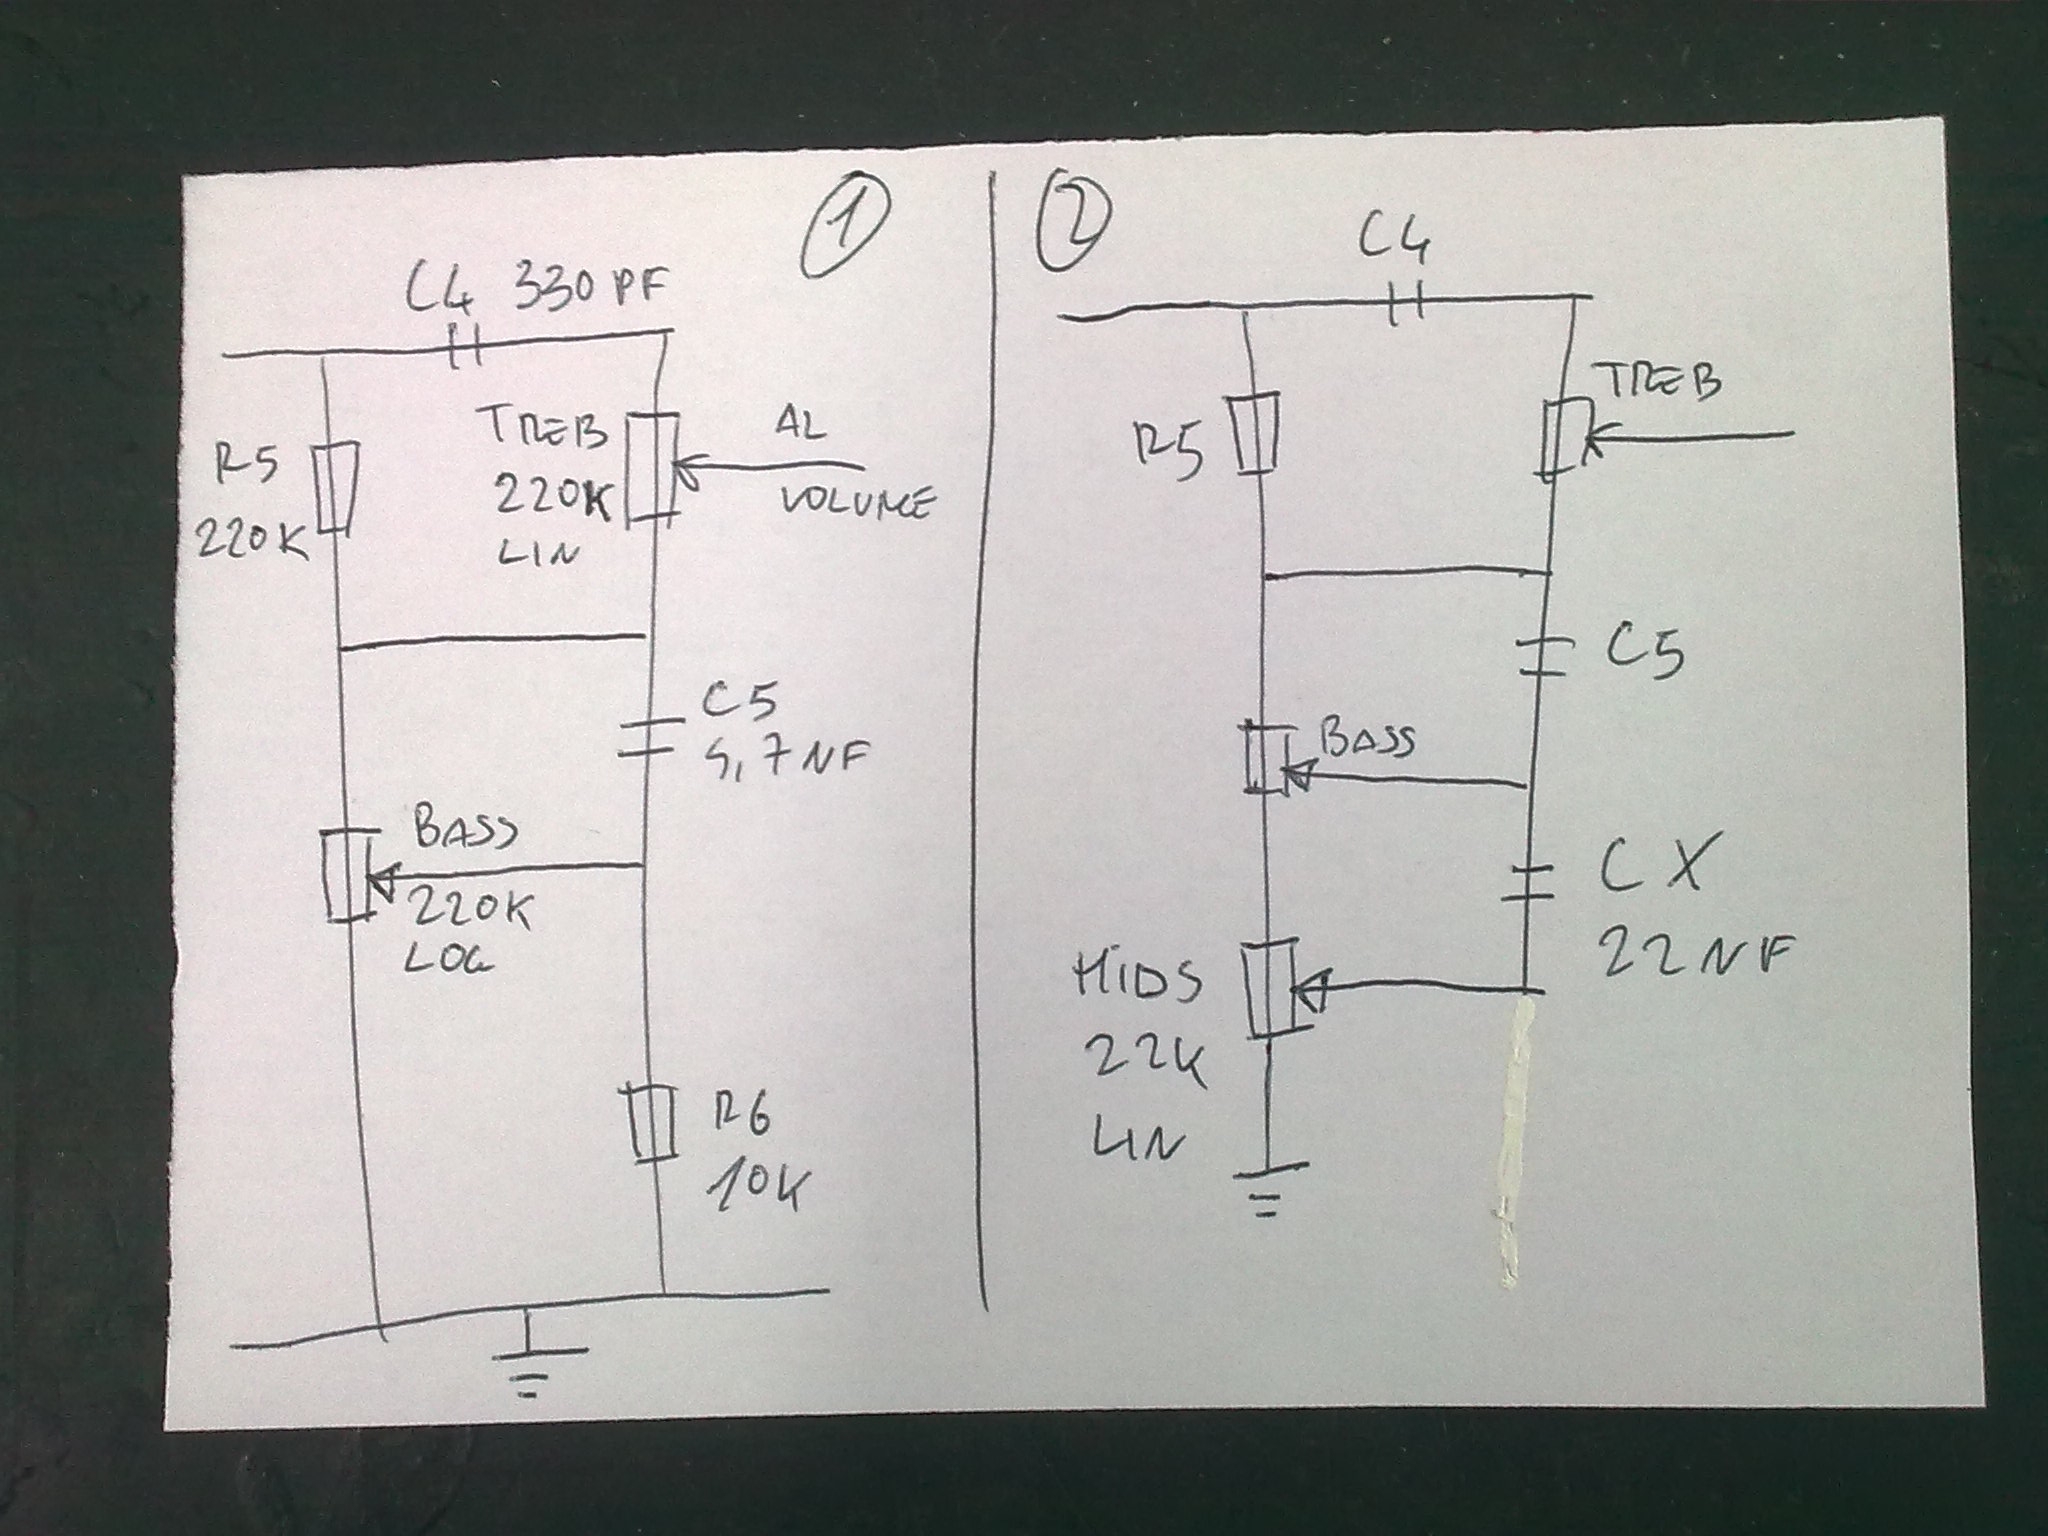 1
C4 330 PF
R5
220K
TREB
220K
LIN
AL
VOLUME
C5
4,7 NF
BASS
220K
LOG
R6
10K
2
C4
R5
TREB
C5
BASS
CX
22 NF
MIDS
22K
LIN